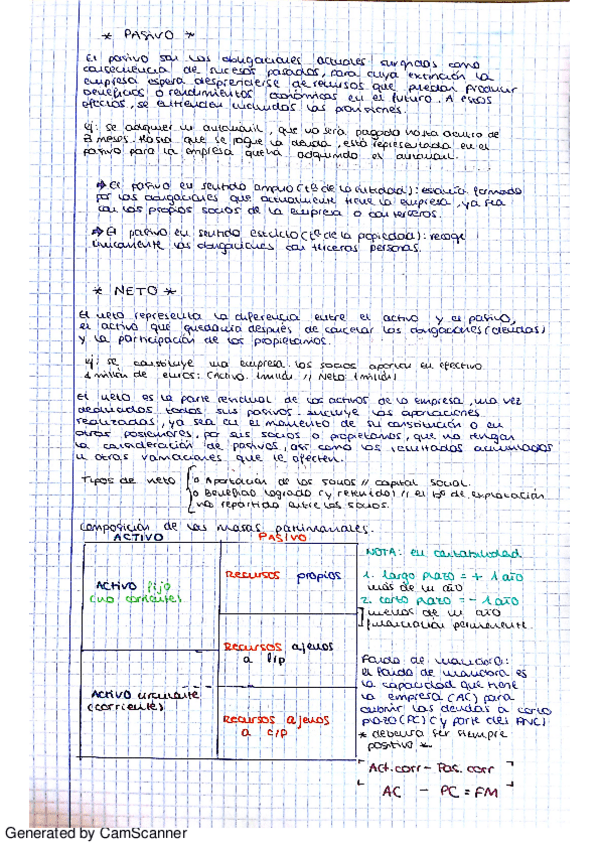 * PASIVO *
El pasivo son las obligaciones actuales surgidas como
consecuencia de sucesos pasados, para cuya extinción la
empresa espera desprenderse de recursos que puedan producir
beneficios o rendimientos económicos en el futuro. A estos
efectos, se entienden incluidas las provisiones.
ej: se adquiere un automóvil, que no será pagado hasta dentro de
3 meses. Hasta que se pague la deuda, está representada en el
pasivo para la empresa que ha adquirido el automóvil.
→ El pasivo en sentido amplio (tª de la entidad): estaría formado
por las obligaciones que actualmente tiene la empresa, ya sea
con los propios socios de la empresa o con terceros.
→ El pasivo en sentido estricto (tª de la propiedad): recoge
únicamente las obligaciones con terceras personas.
* NETO *
El neto representa la diferencia entre el activo y el pasivo,
el activo que quedaría después de cancelar las obligaciones (deudas)
y la participación de los propietarios.
ej: se constituye una empresa. los socios aportan en efectivo
1 millón de euros: (Activo 1 mill // Neto 1 mill)
El neto es la parte residual de los activos de la empresa, una vez
deducidos todos sus pasivos. Incluye las aportaciones
realizadas, ya sea en el momento de su constitución o en
otros posteriores, por sus socios o propietarios, que no tengan
la consideración de pasivos, así como los resultados acumulados
u otras variaciones que le afecten.
Tipos de neto
o Aportación de los socios // capital social.
o Beneficio logrado (y retenido) // el de explotación
no repartido entre los socios.
Composición de las masas patrimoniales.
ACTIVO PASIVO
Activo fijo
(no corriente)
Activo circulante
(corriente)
Recursos propios
Recursos ajenos
a l/p
Recursos ajenos
a c/p
NOTA: en contabilidad
1. largo plazo = + 1 año
más de un año
2. corto plazo = - 1 año
menos de un año
financiación permanente
Fondo de maniobra:
el fondo de maniobra es
la capacidad que tiene
la empresa (AC) para
cubrir las deudas a corto
plazo (PC) (y parte del ANC)
* debería ser siempre
positivo *
Act. corr - Pas. corr
AC - PC = FM
Generated by CamScanner